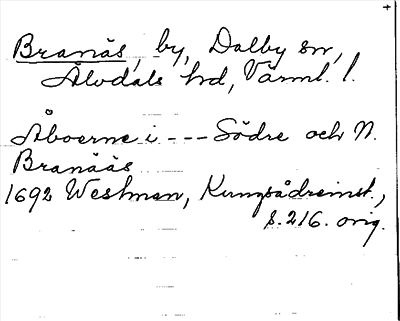 Branäs, by, Dalby sn,
Älvdals hd, Värml. l.
Åboerne i --- Södre och N.
Branääs
1692 Westman, Kungsådreinst.,
s. 216. orig.